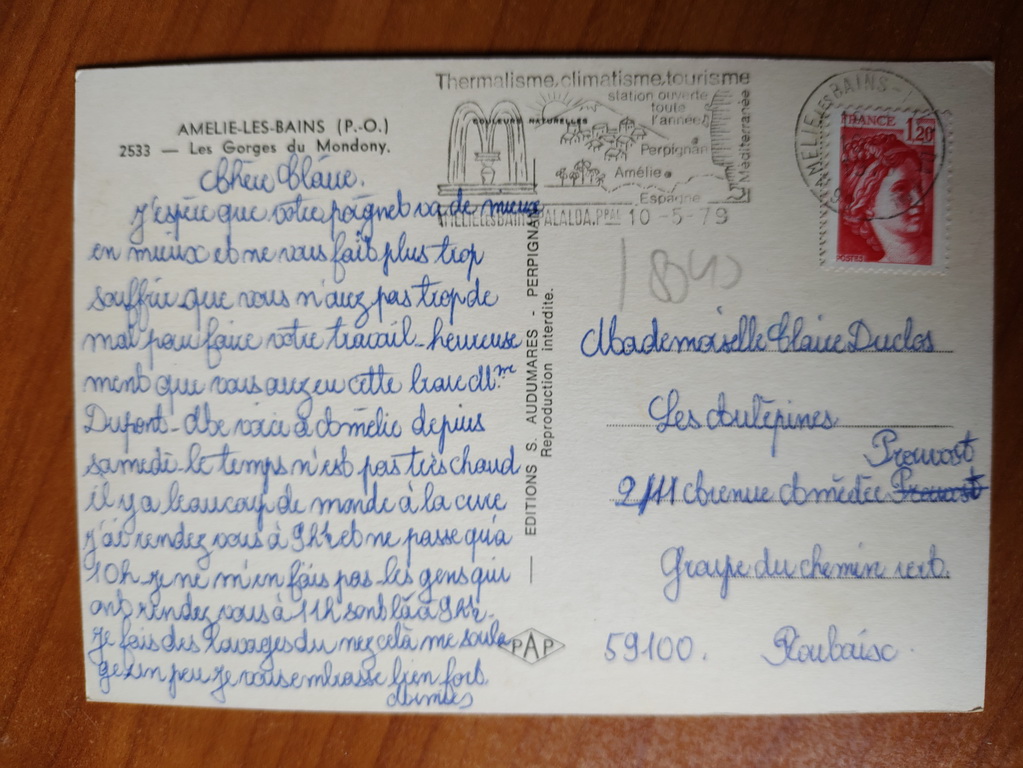 AMELIE-LES-BAINS (P.-O.)
2533 — Les Gorges du Mondony.
Chère Claire.
j'espère que votre poignet va de mieux
en mieux et ne vous fait plus trop
souffrir que vous n'avez pas trop de
mal pour faire votre travail - heureuse
ment que vous avez eu cette brave Mme
Dupont - Me voici à Amélie depuis
samedi le temps n'est pas très chaud
il y a beaucoup de monde à la cure
j'ai rendez vous à 9h½ et ne passe qu'à
10h je ne m'en fais pas les gens qui
ont rendez vous à 11h sont là à 9h½.
Je fais des lavages du nez celà me soula
ge un peu je vous embrasse bien fort.
EDITIONS S. AUDUMARES - PERPIGNAN
Reproduction interdite.
COULEURS NATURELLES
PAP
Thermalisme, climatisme, tourisme
station ouverte
toute
l'année
Perpignan
Amélie
Espagne
Méditerranée
AMELIE LES BAINS PALALDA. PPAL 10-5-79
AMELIE LES BAINS
FRANCE 1,20
POSTES
1840
Mademoiselle Claire Duclos
Les Aulépines
Prouvost
2/11 Avenue Amédée Prouvost
Groupe du chemin vert.
59100. Roubaix.